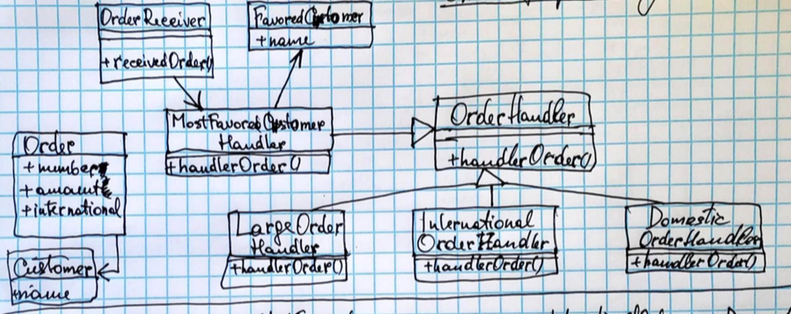 OrderReceiver
+receivedOrder()
FavoredCustomer
+name
MostFavoredCustomer
Handler
+handlerOrder()
OrderHandler
+handlerOrder()
Order
+number
+amount
+international
Customer
+name
LargeOrder
Handler
+handlerOrder()
International
OrderHandler
+handlerOrder()
Domestic
OrderHandler
+handlerOrder()